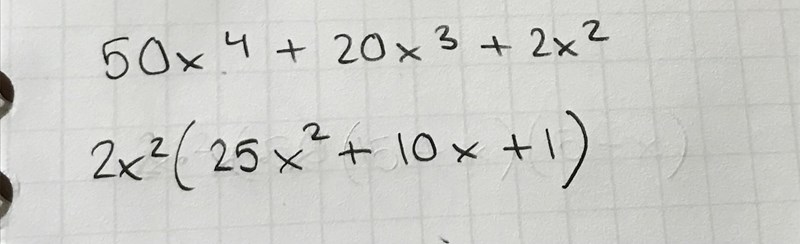 50x⁴ + 20x³ + 2x²
2x²(25x² + 10x + 1)